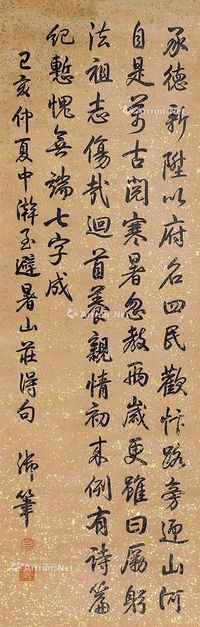 承德新陞以府名四民歡忭路旁迎山河
自是萬古閱寒暑忽教兩歲更雖曰勵躬
法祖志傷哉迴首養親情初來例有詩篇
紀慙愧無端七字成
己亥仲夏中澣至避暑山莊得句
御筆